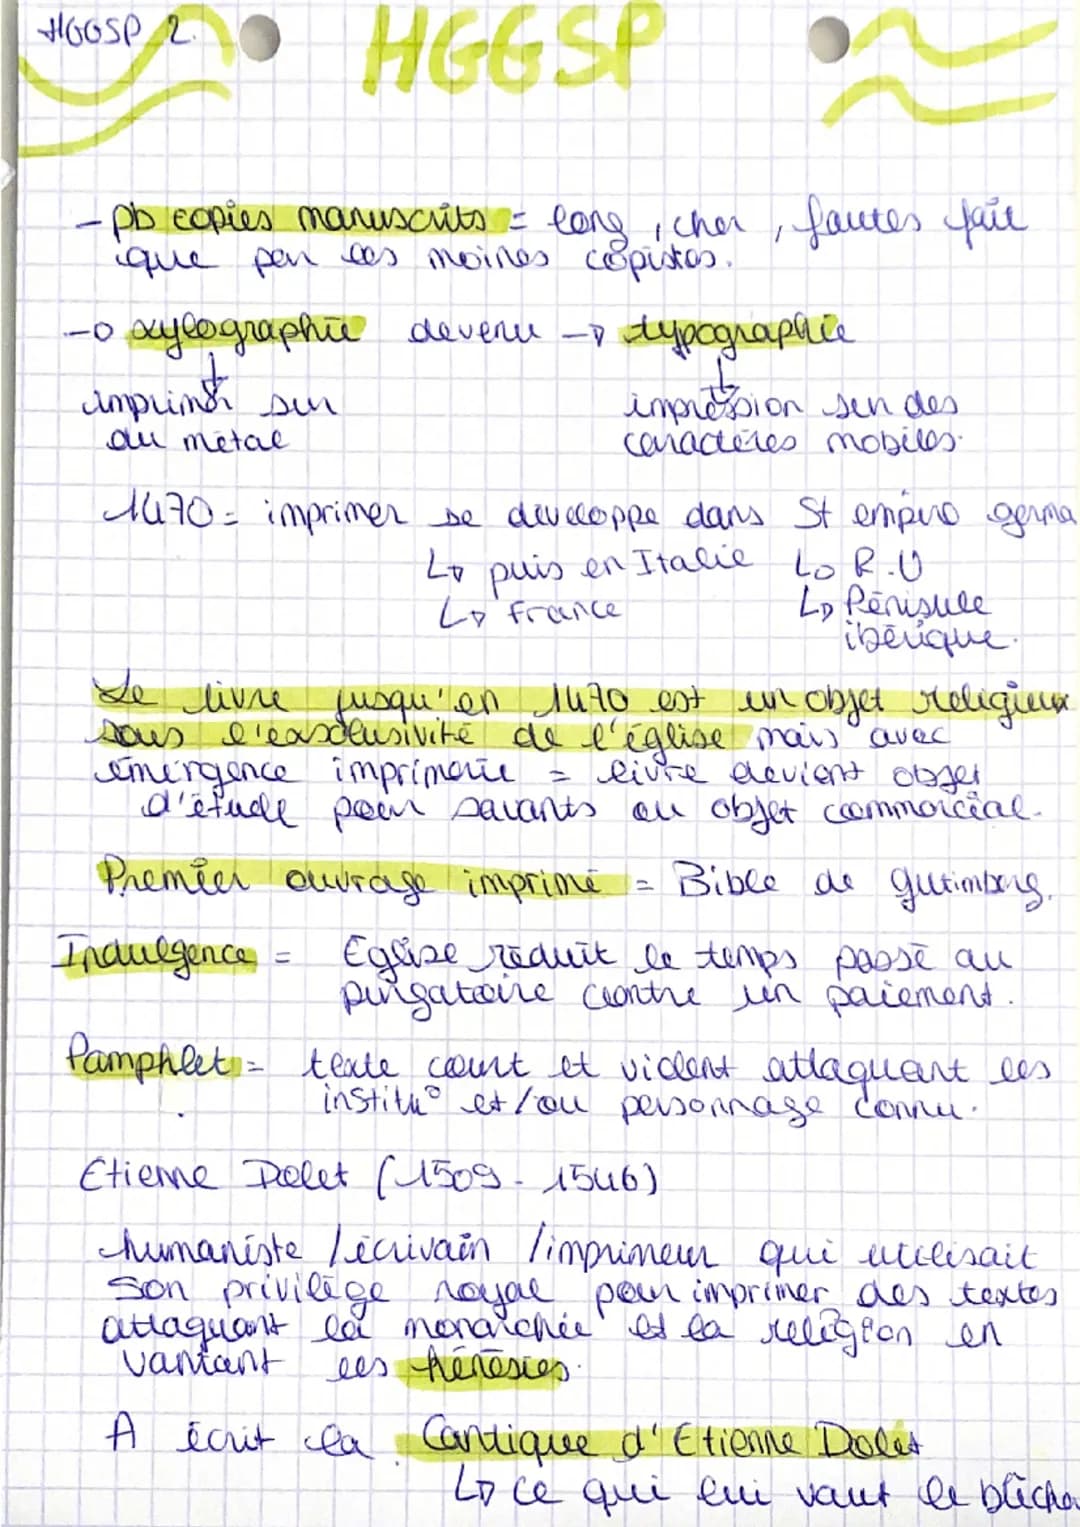 HGGSP 2.
HGGSP
- pb copies manuscrits = long, cher, fautes fait
que par les moines copistes.
→ xylographie devenu → typographie
↓ ↓
imprimer sur impression sur des
du métal caractères mobiles.
1470 = imprimer se developpe dans St empire germa
↳ puis en Italie ↳ R.U
↳ France ↳ Pénisule
ibérique.
Le livre jusqu'en 1470 est un objet religieux
sous l'exsclusivité de l'église mais avec
émergence imprimerie = livre devient objet
d'étude pour savants ou objet commercial.
Premier ouvrage imprimé = Bible de gutimberg.
Indulgence = Eglise réduit le temps passé au
purgatoire contre un paiement.
Pamphlet = texte court et violent attaquant les
instituº et/ou personnage connu.
Etienne Dolet (1509 - 1546)
humaniste / écrivain / imprimeur qui utilisait
son privilège royal pour imprimer des textes
attaquant la monarchie et la religion en
vantant les hérésies.
A écrit la Cantique d'Etienne Dolet
↳ ce qui lui vaut le bûcher